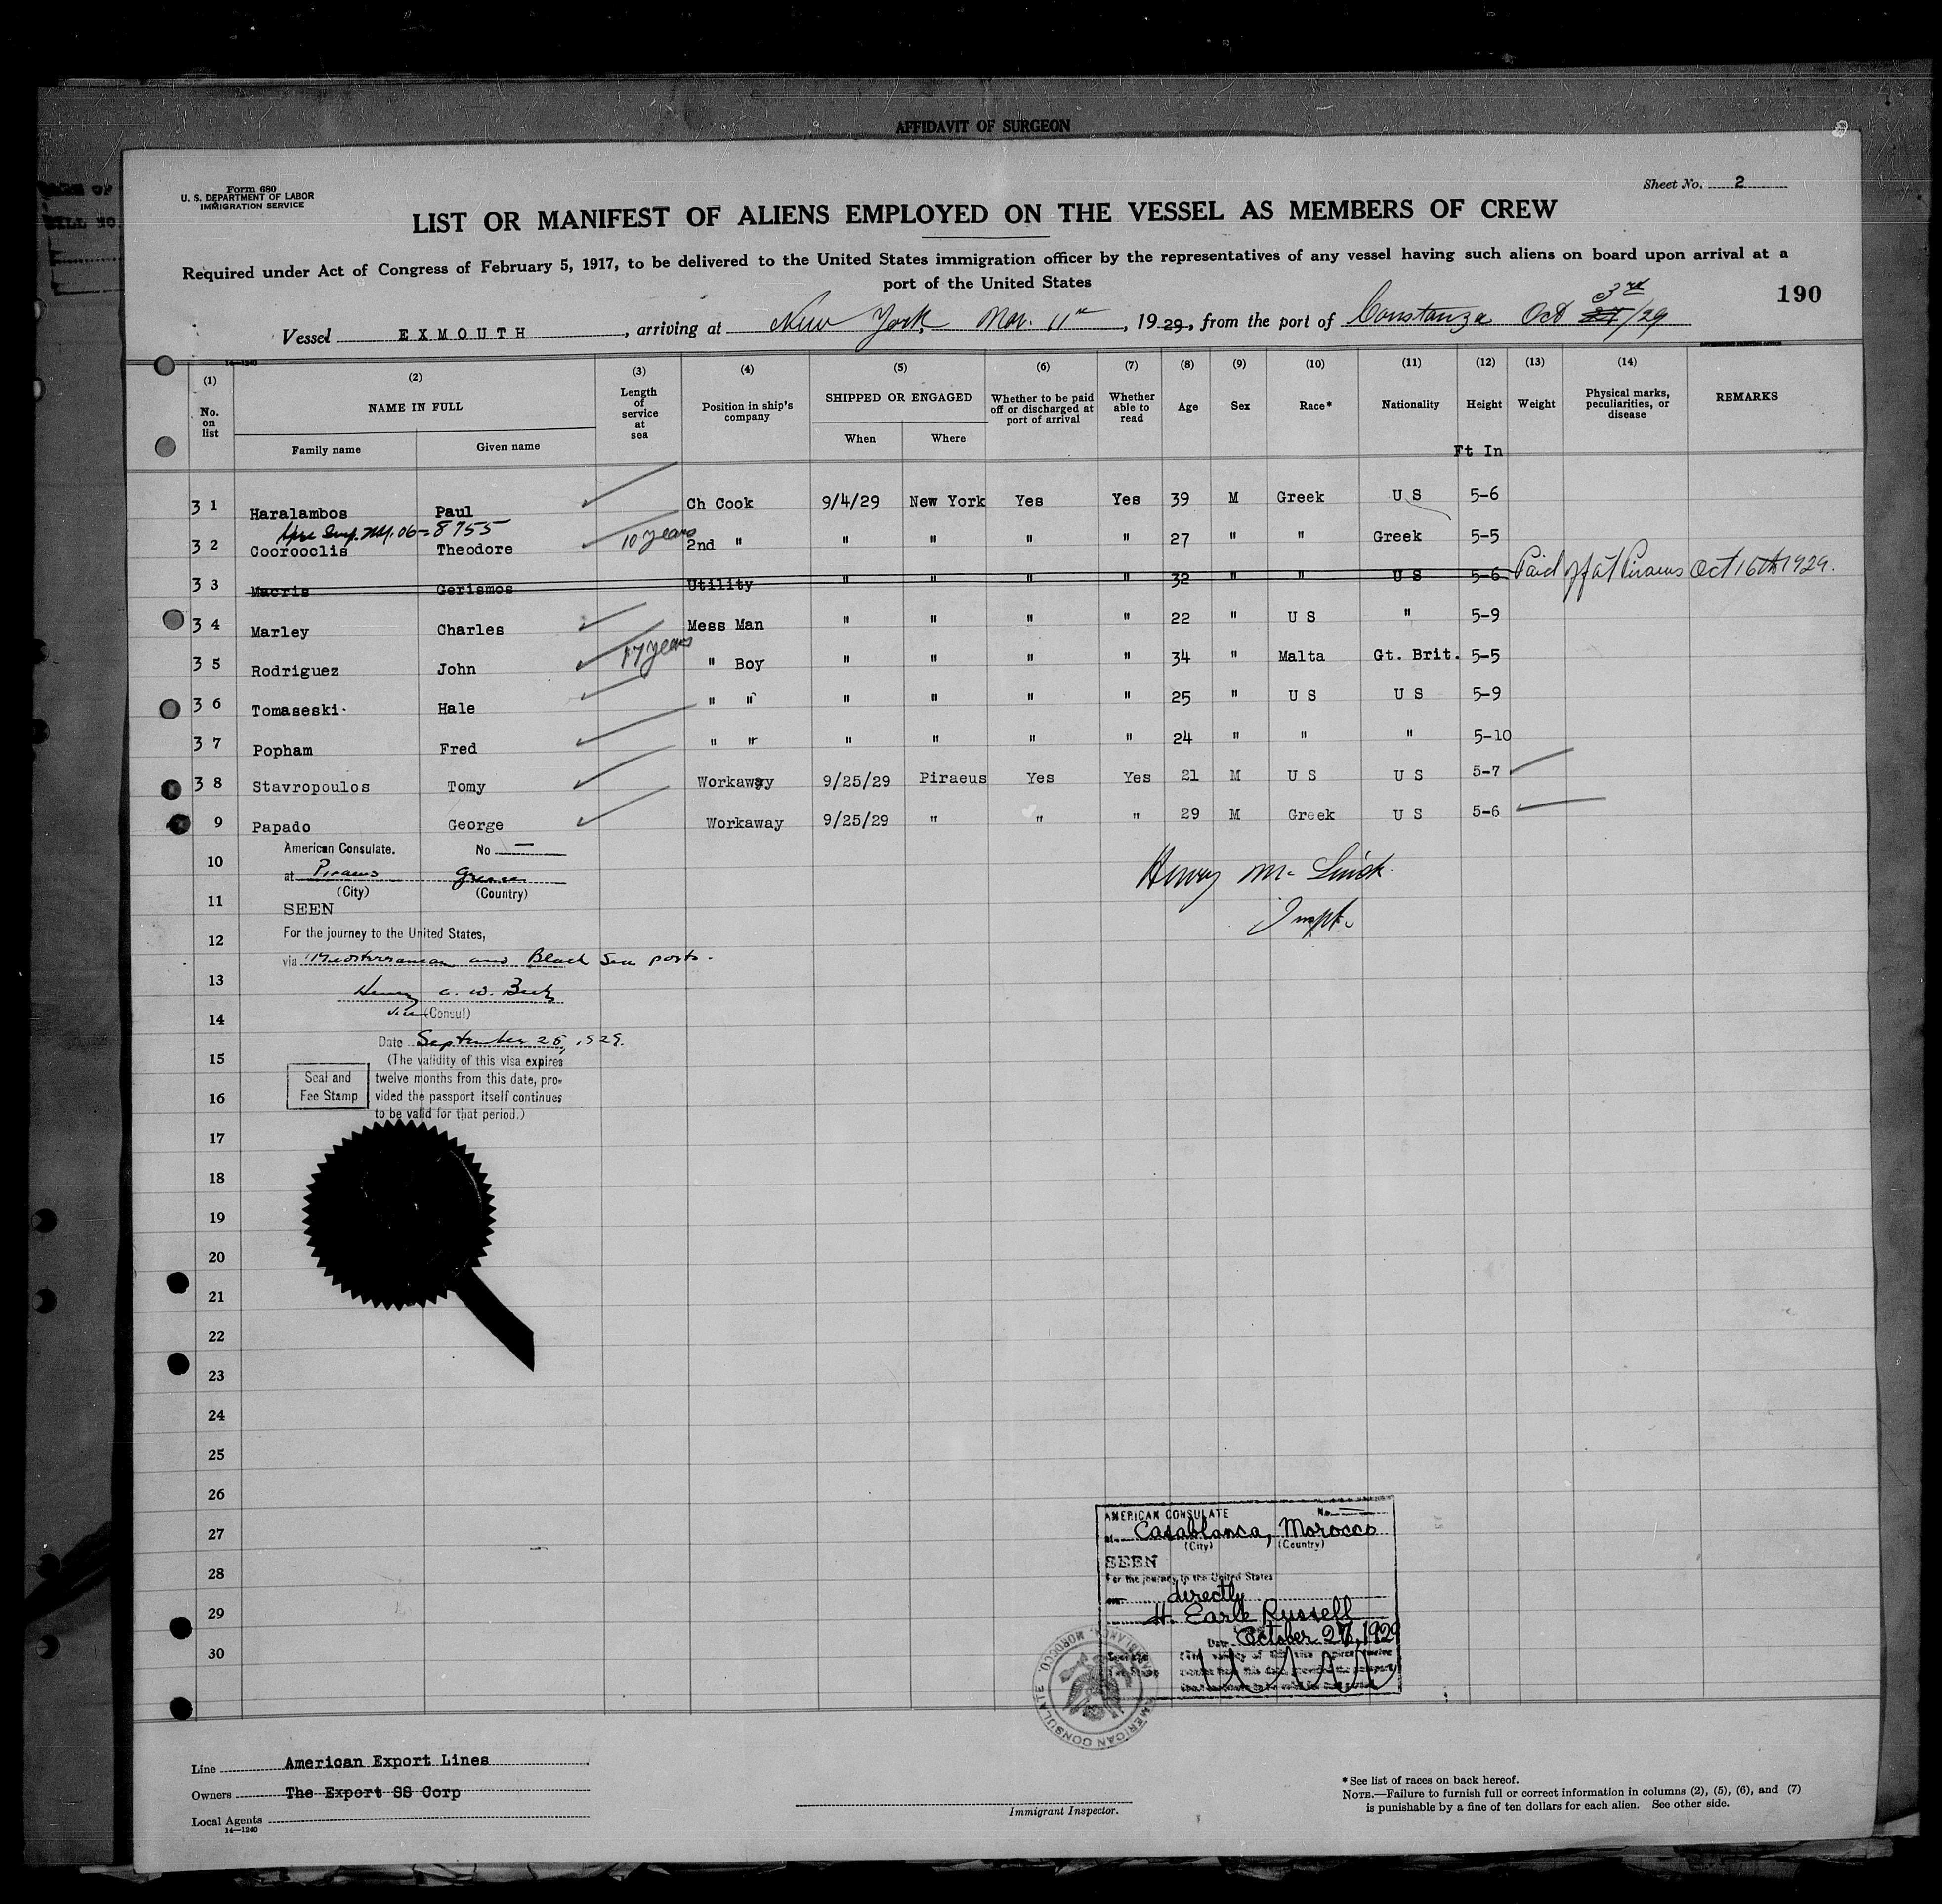 AFFIDAVIT OF SURGEON
Form 680
U. S. DEPARTMENT OF LABOR
IMMIGRATION SERVICE
Sheet No. 2
LIST OR MANIFEST OF ALIENS EMPLOYED ON THE VESSEL AS MEMBERS OF CREW
Required under Act of Congress of February 5, 1917, to be delivered to the United States immigration officer by the representatives of any vessel having such aliens on board upon arrival at a
port of the United States
190
Vessel EXMOUTH, arriving at New York, Nov. 11th, 1929, from the port of Constanza Oct 3rd /29
14—1240
(1) (2) (3) (4) (5) (6) (7) (8) (9) (10) (11) (12) (13) (14)
No. on list NAME IN FULL Length of service at sea Position in ship's company SHIPPED OR ENGAGED Whether to be paid off or discharged at port of arrival Whether able to read Age Sex Race* Nationality Height Weight Physical marks, peculiarities, or disease REMARKS
Family name Given name When Where Ft In
31 Haralambos Paul Ch Cook 9/4/29 New York Yes Yes 39 M Greek U S 5-6
06-8755
32 Coorooclis Theodore 10 years 2nd " " " " " 27 " " Greek 5-5
33 Macris Gerismos Utility " " " " 32 " " U S 5-6 Paid off at Piraeus Oct 16th 1929.
34 Marley Charles Mess Man " " " " 22 " U S " 5-9
35 Rodriguez John 17 years " Boy " " " " 34 " Malta Gt. Brit. 5-5
36 Tomaseski Hale " " " " " " 25 " U S U S 5-9
37 Popham Fred " " " " " " 24 " " " 5-10
38 Stavropoulos Tomy Workaway 9/25/29 Piraeus Yes Yes 21 M U S U S 5-7
9 Papado George Workaway 9/25/29 " " " 29 M Greek U S 5-6
American Consulate. No —
10
at Piraeus Greece
(City) (Country)
Henry M.
Inspt.
11
SEEN
12
For the journey to the United States,
via Mediterranean and Black Sea ports.
13
Henry C. W.
14
Vice (Consul)
Date September 25, 1929.
15
(The validity of this visa expires
twelve months from this date, pro-
vided the passport itself continues
to be valid for that period.)
Seal and
Fee Stamp
16
17
18
19
20
21
22
23
24
25
26
27
28
29
30
AMERICAN CONSULATE No. —
at Casablanca, Morocco
(City) (Country)
SEEN
For the journey to the United States
directly
H. Earle Russell
Date October 27, 1929
AMERICAN CONSULATE CASABLANCA, MOROCCO.
Line American Export Lines
Owners The Export SS Corp
Local Agents
14—1240
Immigrant Inspector.
*See list of races on back hereof.
NOTE.—Failure to furnish full or correct information in columns (2), (5), (6), and (7)
is punishable by a fine of ten dollars for each alien. See other side.